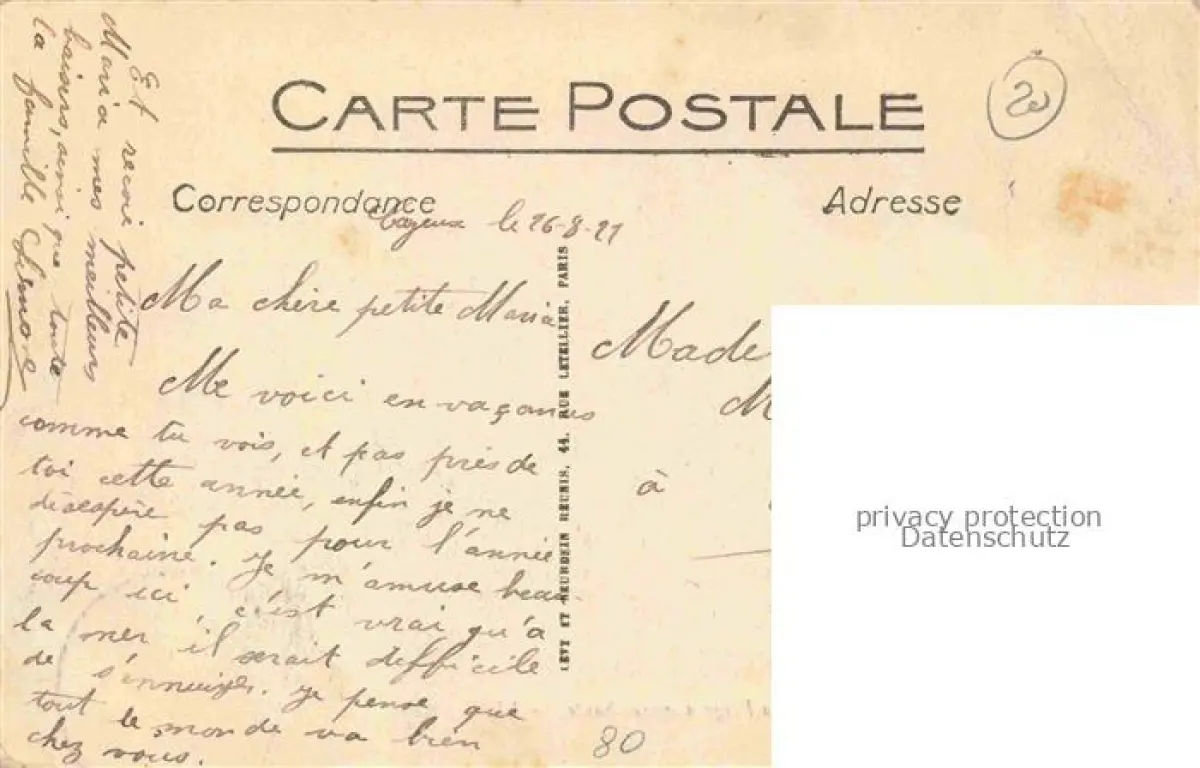 CARTE POSTALE
20
Correspondance
Adresse
Cayeux le 26-8-21
Ma chère petite Maria
Me voici en vaçances
comme tu vois, et pas près de
toi cette année, enfin je ne
désespère pas pour l'année
prochaine. Je m'amuse beau-
coup ici, c'est vrai qu'à
la mer il serait difficile
de s'ennuyer. Je pense que
tout le monde va bien
chez vous.
Et reçoi petite
Maria mes meilleurs
baisers, ainsi que toute
la famille
LEVY ET NEURDEIN REUNIS, 44, RUE LETELLIER, PARIS
Made
M
à
80
privacy protection
Datenschutz